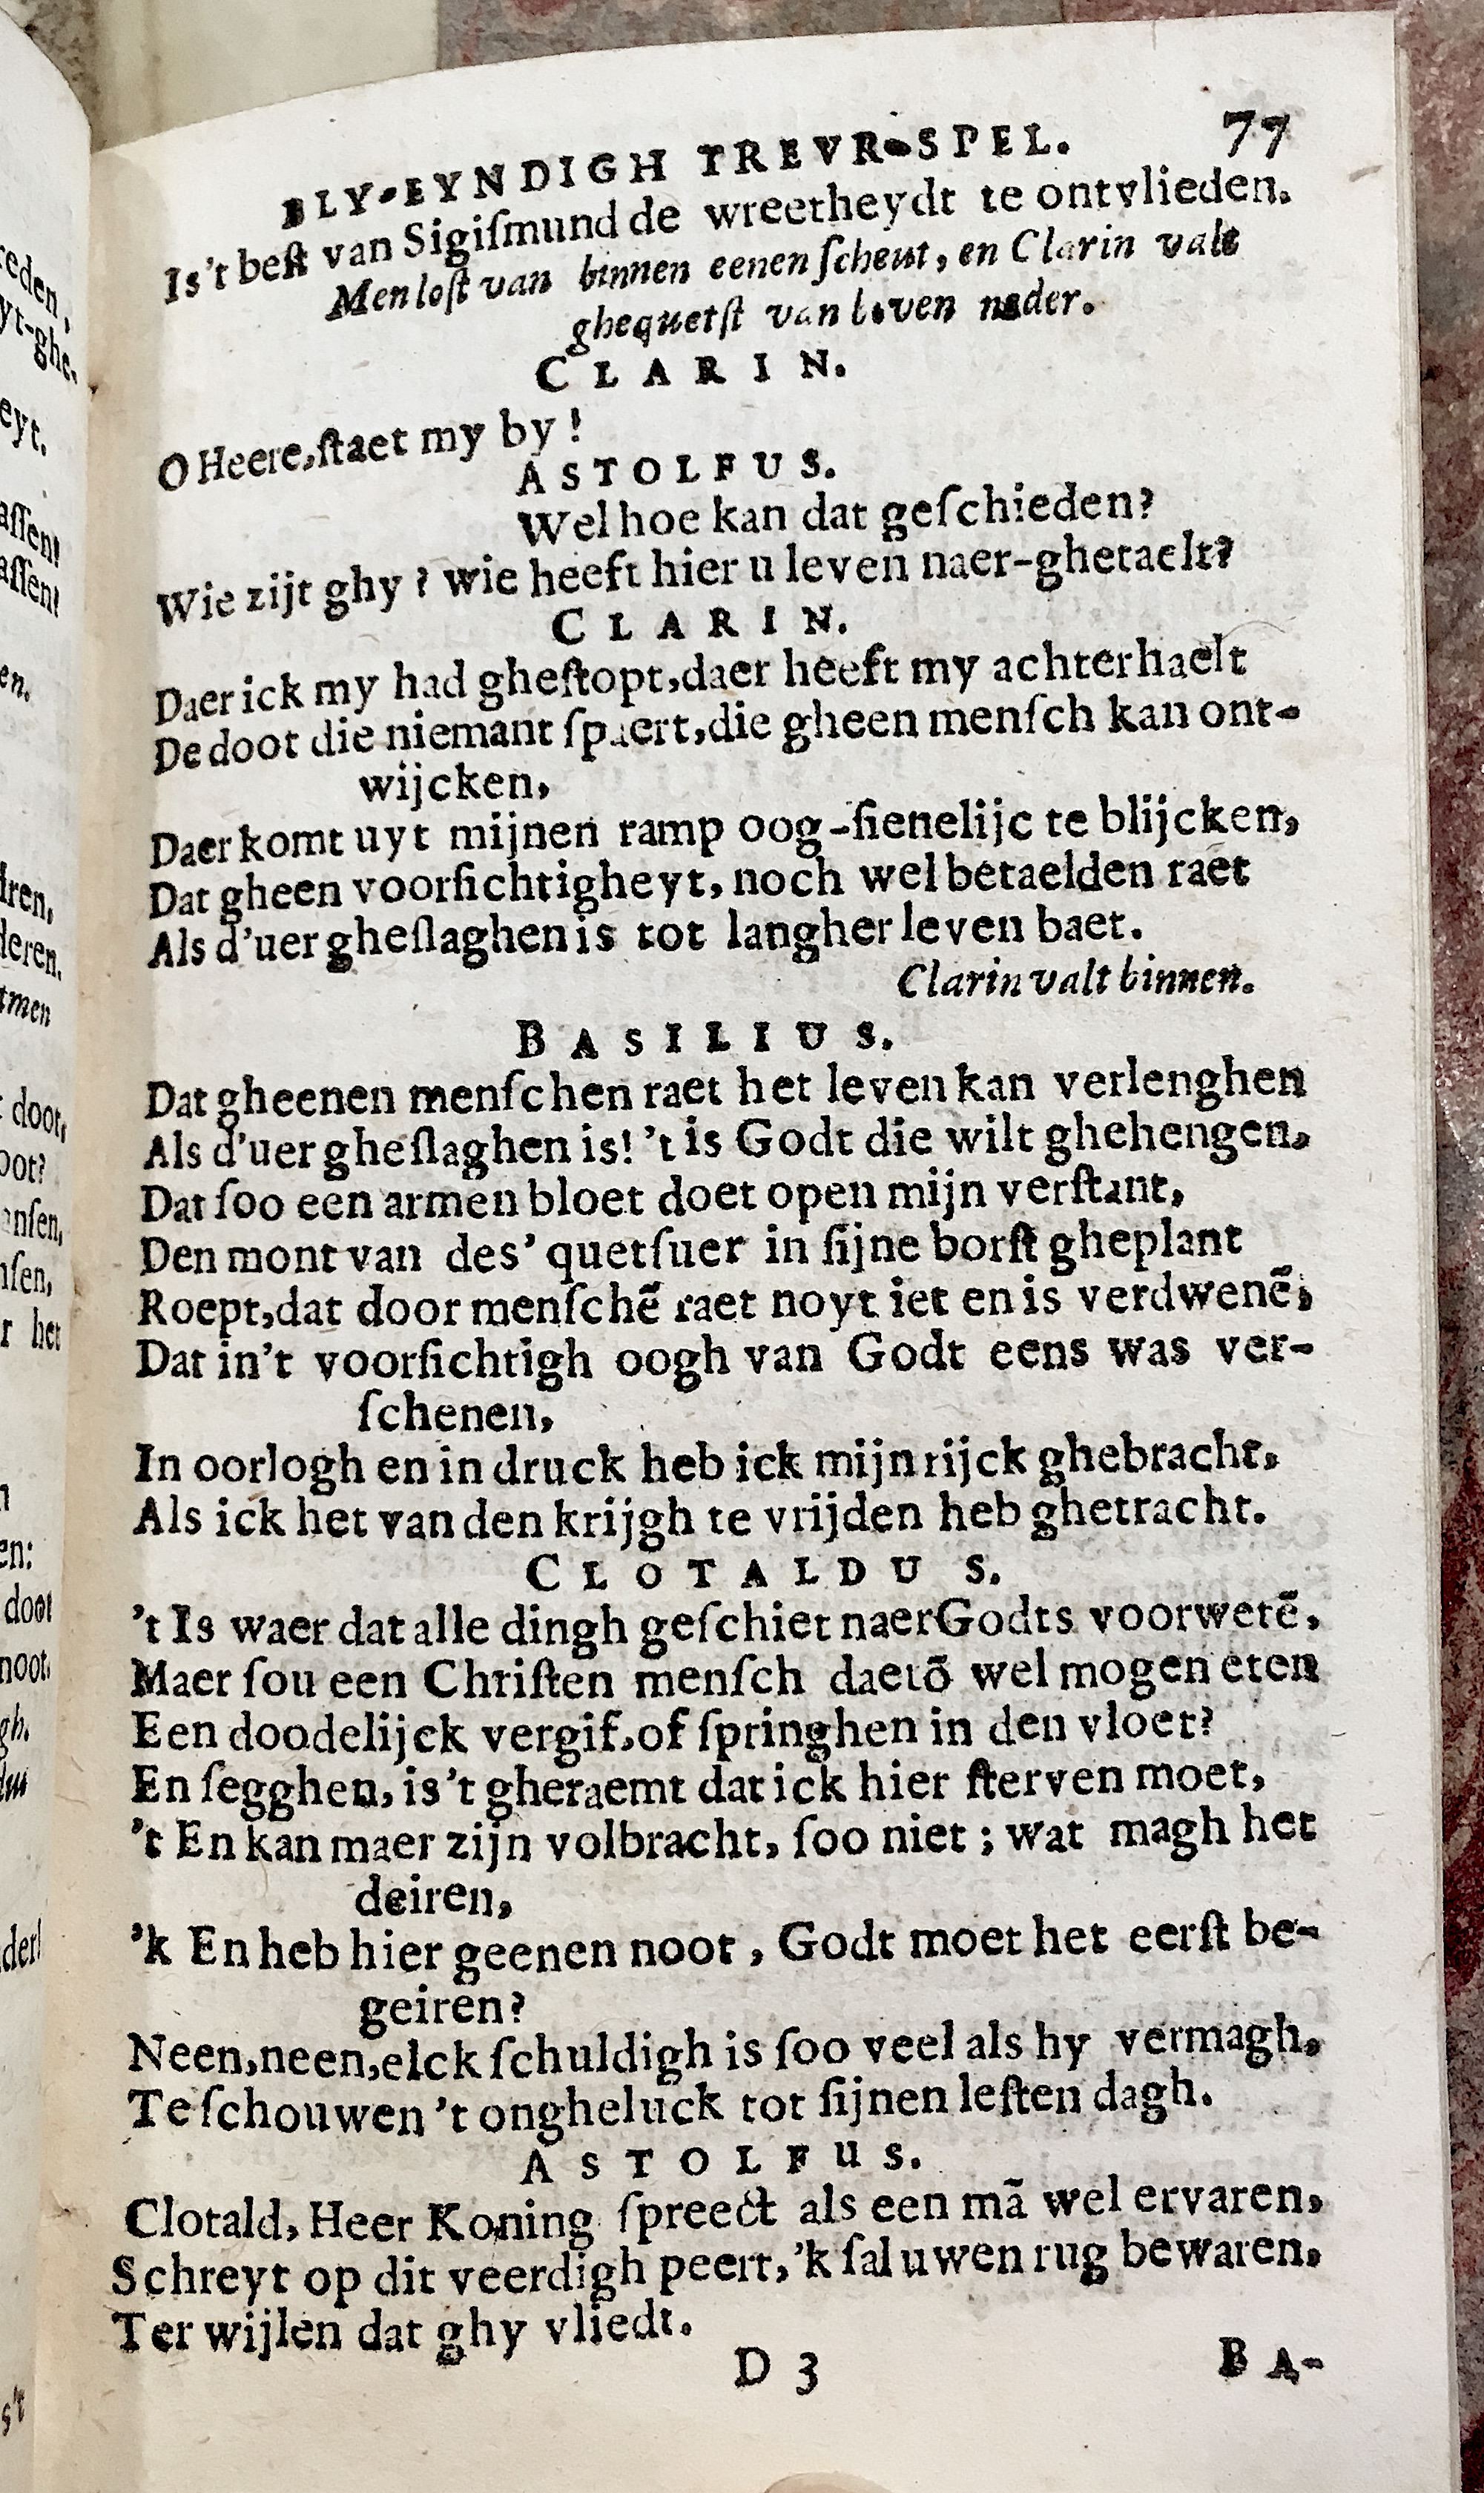 BLY-EYNDIGH TREVR-SPEL. 77
Is't best van Sigiſmund de wreetheydt te ontvlieden.
Men loſt van binnen eenen ſcheut, en Clarin valt
ghequetſt van boven neder.
CLARIN.
O Heere, ſtaet my by!
ASTOLFUS.
Wel hoe kan dat geſchieden?
Wie zijt ghy? wie heeft hier u leven naer-ghetaelt?
CLARIN.
Daer ick my had gheſtopt, daer heeft my achterhaelt
De doot die niemant ſpaert, die gheen menſch kan ont-
wijcken,
Daer komt uyt mijnen ramp oog-ſienelijc te blijcken,
Dat gheen voorſichtigheyt, noch wel betaelden raet
Als d'uer gheſlaghen is tot langher leven baet.
Clarin valt binnen.
BASILIUS.
Dat gheenen menſchen raet het leven kan verlenghen
Als d'uer gheſlaghen is! 't is Godt die wilt ghehengen,
Dat ſoo een armen bloet doet open mijn verſtant,
Den mont van des' quetſuer in ſijne borſt gheplant
Roept, dat door menſchē raet noyt iet en is verdwenē,
Dat in't voorſichtigh oogh van Godt eens was ver-
ſchenen,
In oorlogh en in druck heb ick mijn rijck ghebracht,
Als ick het van den krijgh te vrijden heb ghetracht.
CLOTALDUS.
't Is waer dat alle dingh geſchiet naer Godts voorwetē,
Maer ſou een Chriſten menſch daerō wel mogen eten
Een doodelijck vergif, of ſpringhen in den vloet?
En ſegghen, is 't gheraemt dat ick hier ſterven moet,
't En kan maer zijn volbracht, ſoo niet; wat magh het
deiren,
'k En heb hier geenen noot, Godt moet het eerſt be-
geiren?
Neen, neen, elck ſchuldigh is ſoo veel als hy vermagh,
Te ſchouwen 't ongheluck tot ſijnen leſten dagh.
ASTOLFUS.
Clotald, Heer Koning ſpreect als een mā wel ervaren,
Schreyt op dit veerdigh peert, 'k ſal uwen rug bewaren,
Ter wijlen dat ghy vliedt.
D 3 BA-